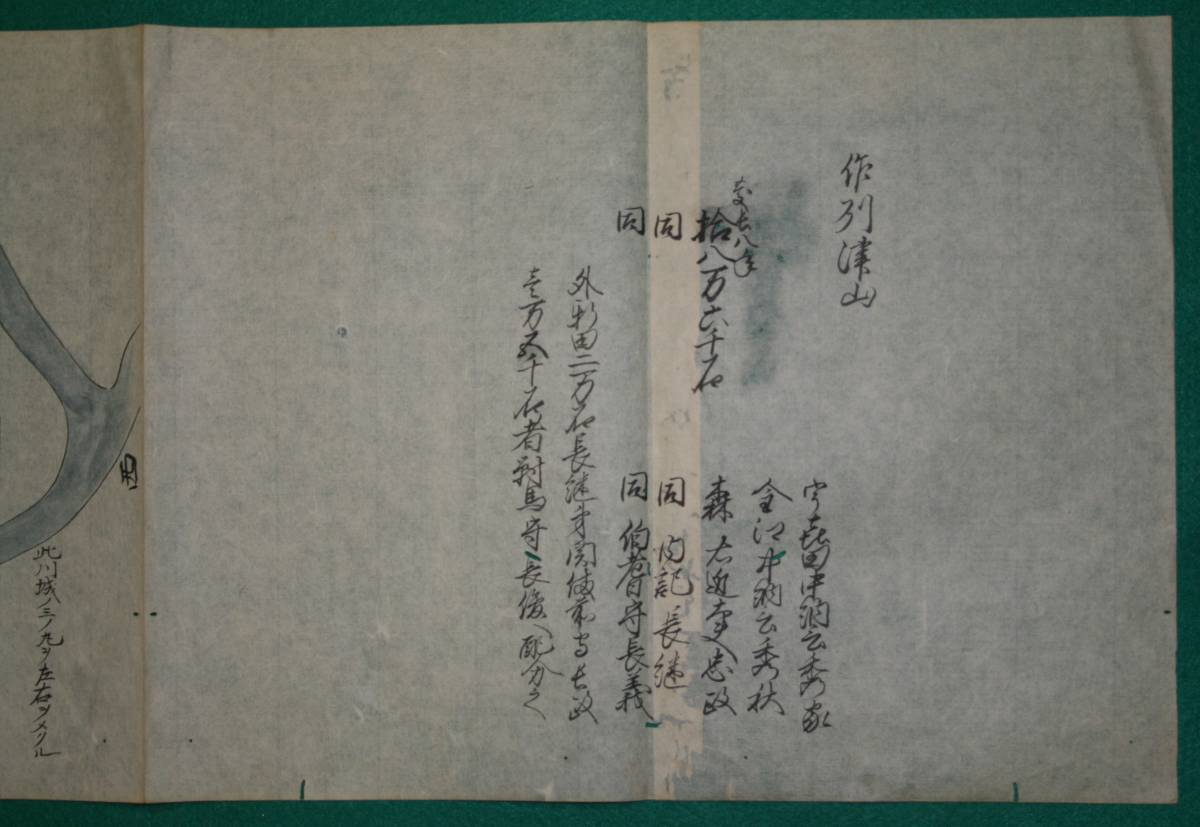 作州津山
宇喜田中納言秀家
金江中納言秀秋
慶長八年
拾八万六千石 森右近大夫忠政
同 同内記長継
同 同伯耆守長義
外新田二万石長継弟関備前守長政
壱万五千石者対馬守長俊配分之
此川城ノ三ノ丸ヲ左右ヲメクル